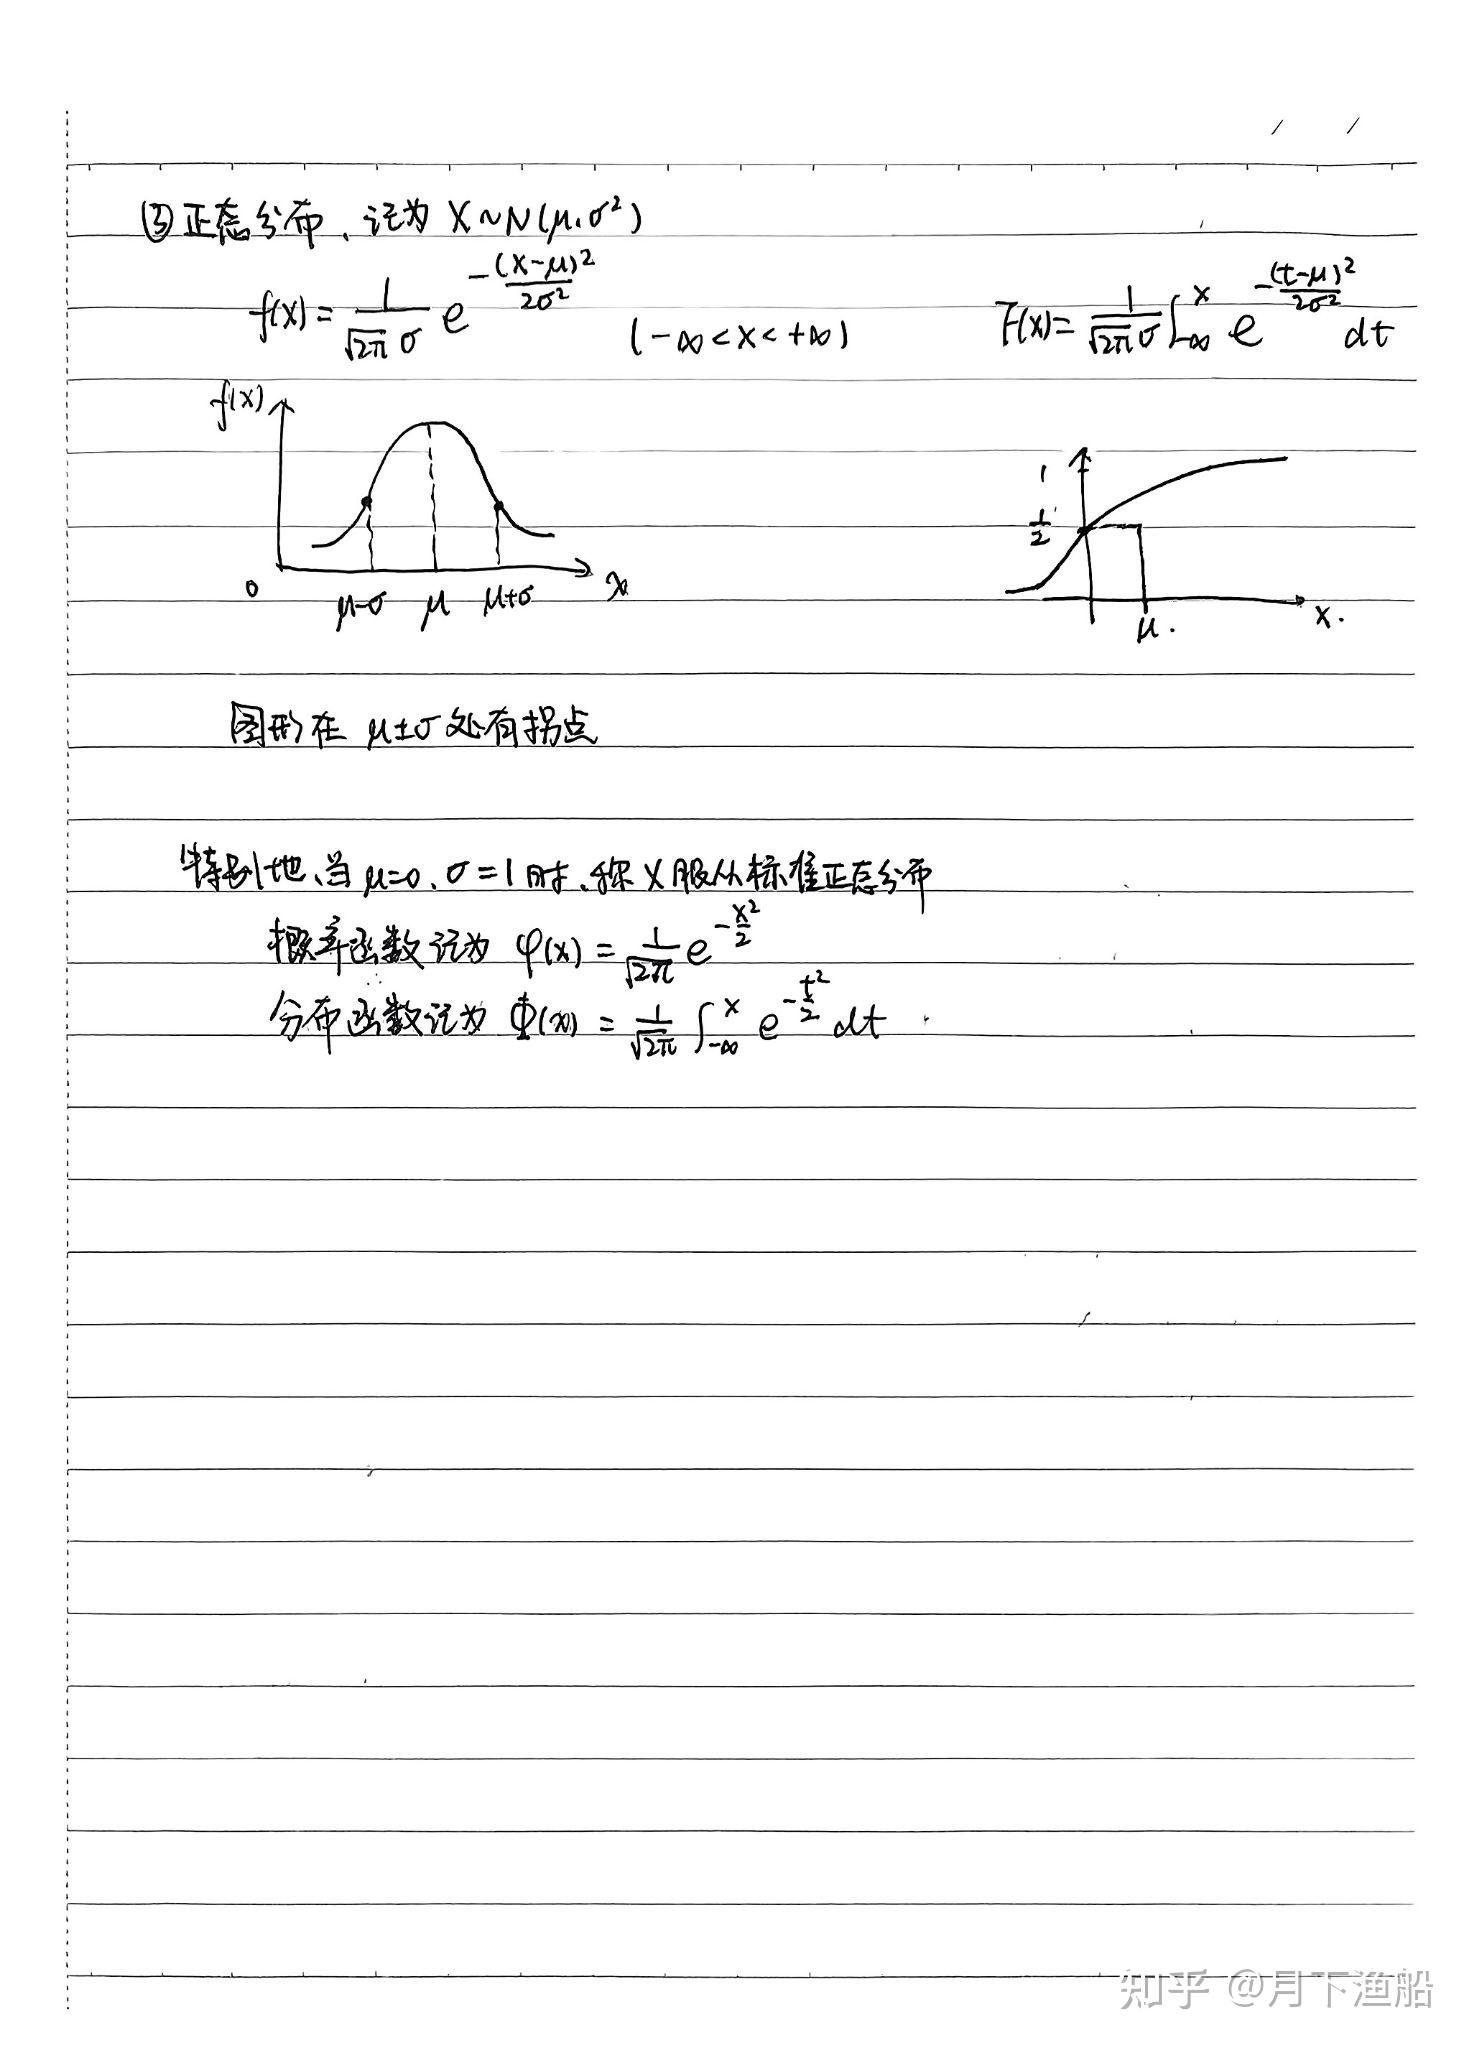 ③正态分布、记为 X~N(μ,σ²)
f(x) = \frac{1}{\sqrt{2π}σ} e^{-\frac{(x-μ)^2}{2σ^2}} (-∞<x<+∞) F(x) = \frac{1}{\sqrt{2π}σ} ∫_{-∞}^{x} e^{-\frac{(t-μ)^2}{2σ^2}} dt
f(x)
0 μ-σ μ μ+σ x
1
\frac{1}{2}
μ. x.
图形在 μ±σ 处有拐点
特别地、当 μ=0、σ=1时、称 X 服从标准正态分布
概率函数记为 φ(x) = \frac{1}{\sqrt{2π}} e^{-\frac{x^2}{2}}
分布函数记为 Φ(x) = \frac{1}{\sqrt{2π}} ∫_{-∞}^{x} e^{-\frac{t^2}{2}} dt
知乎 @月下渔船